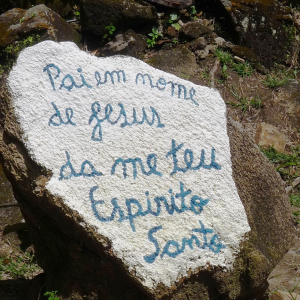 Pai em nome
de jesus
da me teu
Espirito
Santo